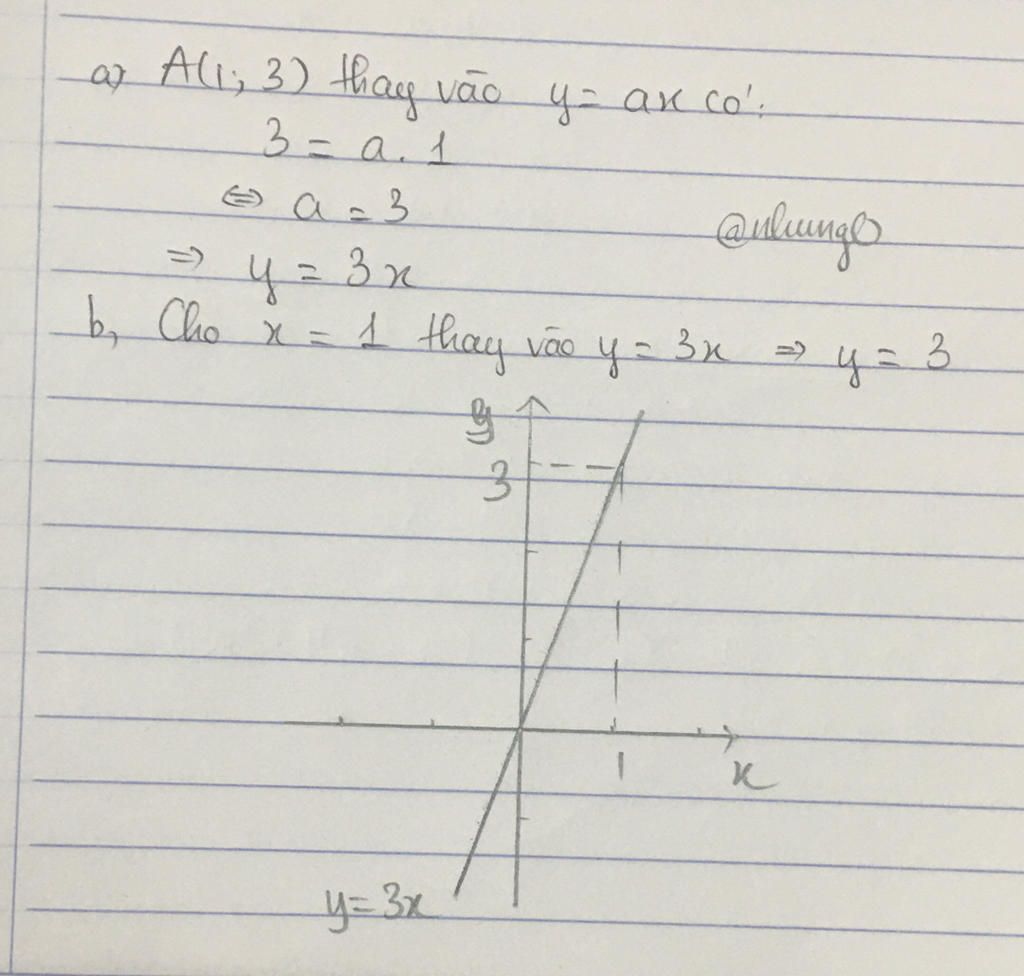 a, A(1; 3) thay vào y = ax có:
3 = a. 1
⇔ a = 3
@nhungl
⇒ y = 3x
b, Cho x = 1 thay vào y = 3x ⇒ y = 3
y
3
1
x
y = 3x